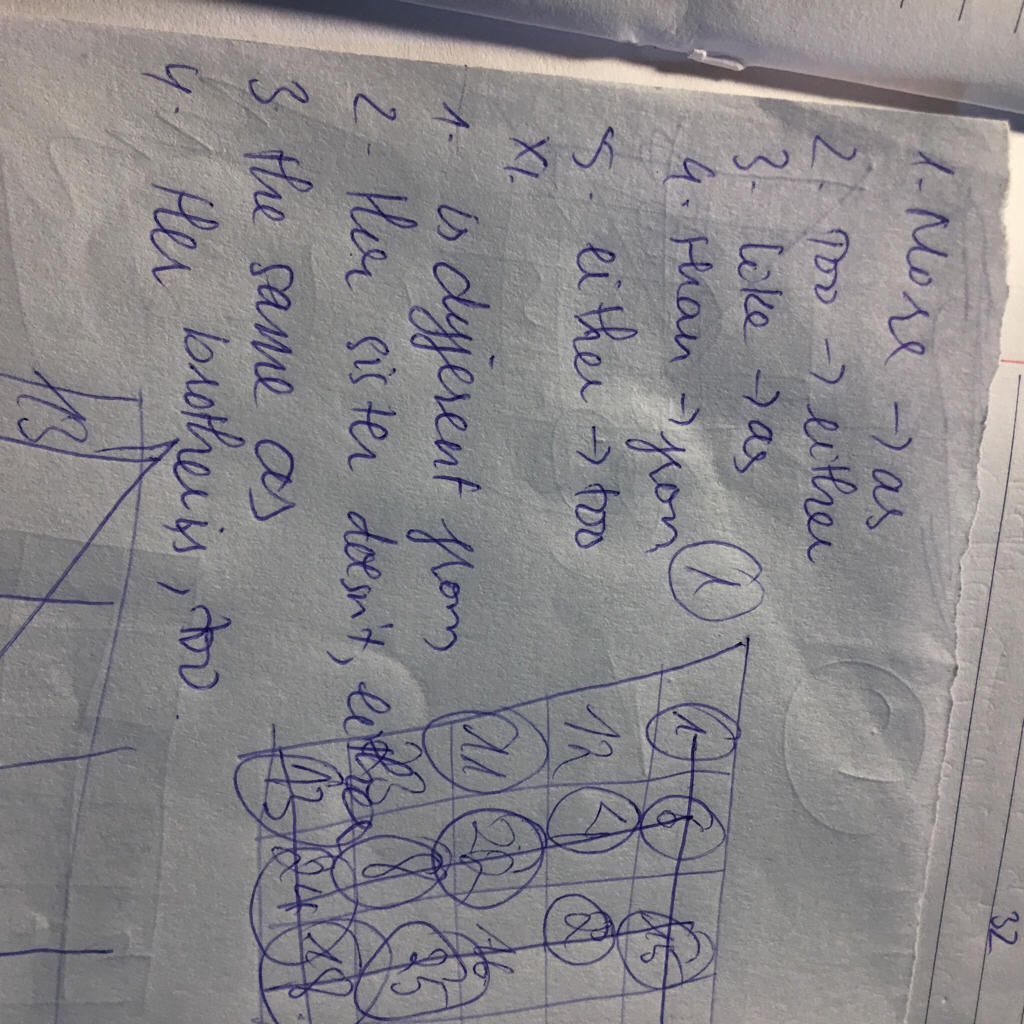 1. More -> as
2. Too -> either
3. like -> as
4. than -> from
5. either -> too
XI.
1. is different from
2. Her sister doesn't, either
3 the same as
4. Her brother is, too.
1
1 6 15
12 21
21 20 16
8 25
13 24 18
113
32